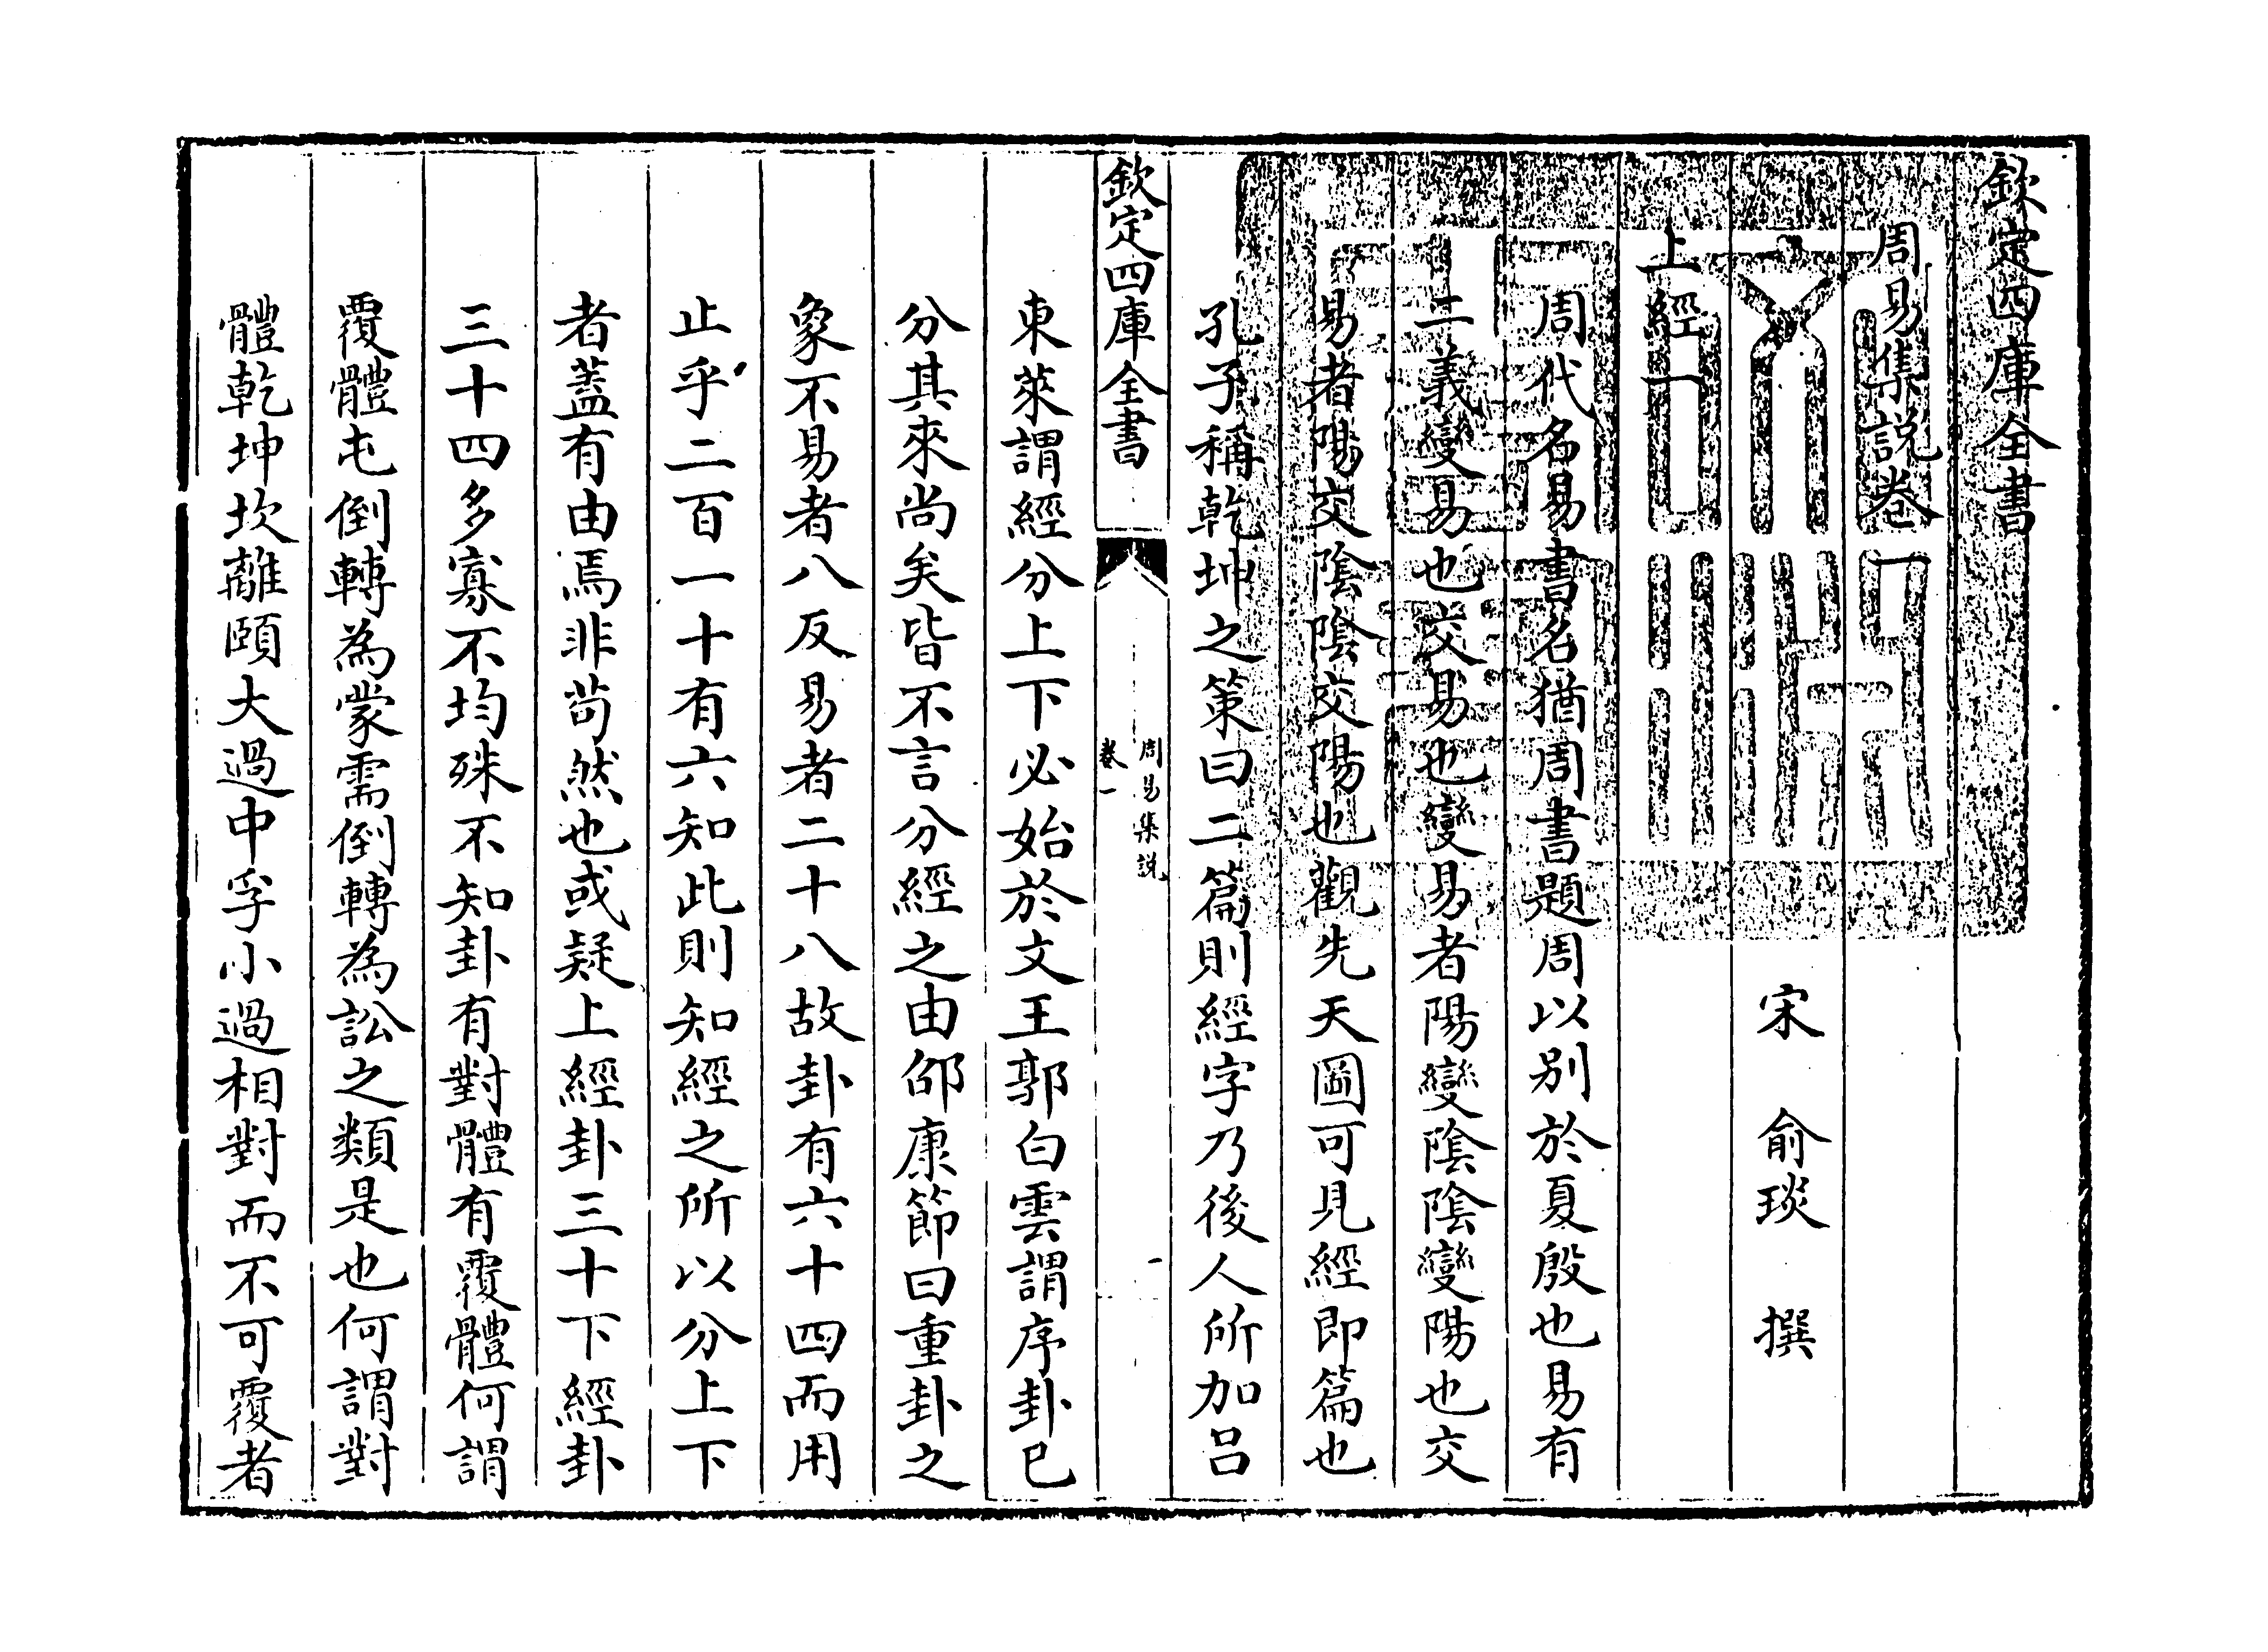 欽定四庫全書
周易集説卷一
宋 俞琰 撰
上經一
周代名易書名猶周書題周以别於夏殷也易有
二義變易也交易也變易者陽變隂隂變陽也交
易者陽交隂隂交陽也觀先天圖可見經即篇也
孔子稱乾坤之策曰二篇則經字乃後人所加吕
欽定四庫全書
周易集説
卷一
一
東萊謂經分上下必始於文王郭白雲謂序卦已
分其來尚矣皆不言分經之由邵康節曰重卦之
象不易者八反易者二十八故卦有六十四而用
止乎二百一十有六知此則知經之所以分上下
者蓋有由焉非苟然也或疑上經卦三十下經卦
三十四多寡不均殊不知卦有對體有覆體何謂
覆體屯倒轉為蒙需倒轉為訟之類是也何謂對
體乾坤坎離頤大過中孚小過相對而不可覆者